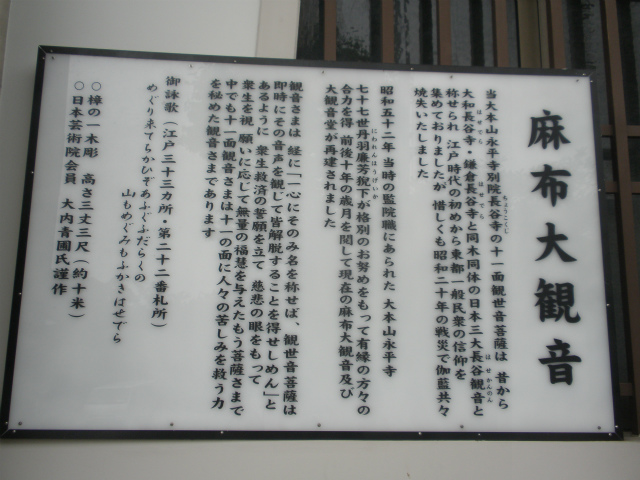 麻布大観音
当大本山永平寺別院長谷寺の十一面観世音菩薩は 昔から
ちょうこくじ
大和長谷寺・鎌倉長谷寺と同木同体の日本三大長谷観音と
はせでら
はせでら
はせかんのん
称せられ 江戸時代の初めから東都一般民衆の信仰を
集めておりましたが 惜しくも昭和二十年の戦災で伽藍共々
焼失いたしました
昭和五十二年 当時の監院職にあられた 大本山永平寺
七十七世丹羽廉芳猊下が格別のお努めをもって有縁の方々の
にわれんほうげいか
合力を得 前後十年の歳月を閲して現在の麻布大観音及び
大観音堂が再建されました
観音さまは 経に「一心にそのみ名を称せば、観世音菩薩は
即時にその音声を観じて皆解脱することを得せしめん」と
あるように 衆生救済の誓願を立て 慈悲の眼をもって
衆生を視 願いに応じて無量の福慧を与えたもう菩薩さまで
中でも十一面観音さまは十一の面に人々の苦しみを救う力
を秘めた観音さまであります
御詠歌(江戸三十三カ所・第二十二番札所)
めぐり来てちかひぞあふぐふだらくの
山もめぐみもふかきはせでら
○樟の一木彫 高さ三丈三尺(約十米)
○日本芸術院会員 大内青圃氏謹作